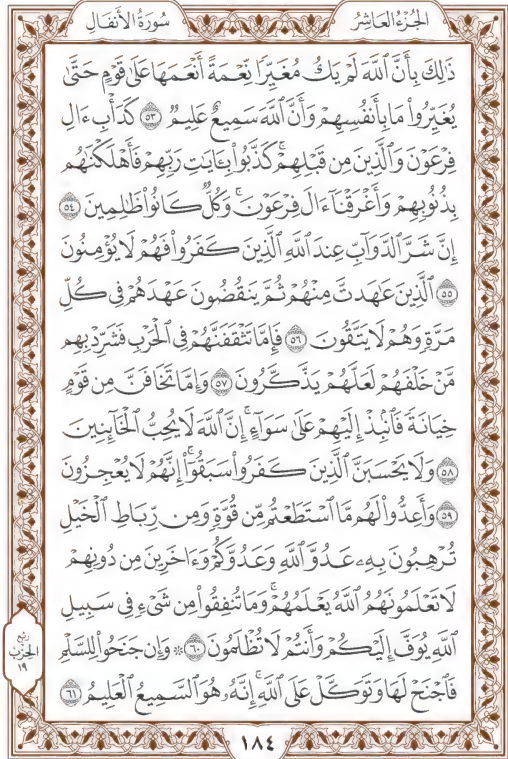 الجُزْءُ العَاشِرُ
سُورَةُ الأَنفَالِ
ذَٰلِكَ بِأَنَّ ٱللَّهَ لَمْ يَكُ مُغَيِّرًا نِّعْمَةً أَنْعَمَهَا عَلَىٰ قَوْمٍ حَتَّىٰ
يُغَيِّرُوا۟ مَا بِأَنفُسِهِمْ وَأَنَّ ٱللَّهَ سَمِيعٌ عَلِيمٌ ٥٣ كَدَأْبِ ءَالِ
فِرْعَوْنَ وَٱلَّذِينَ مِن قَبْلِهِمْ ۚ كَذَّبُوا۟ بِـَٔايَٰتِ رَبِّهِمْ فَأَهْلَكْنَٰهُم
بِذُنُوبِهِمْ وَأَغْرَقْنَآ ءَالَ فِرْعَوْنَ ۚ وَكُلٌّ كَانُوا۟ ظَٰلِمِينَ ٥٤
إِنَّ شَرَّ ٱلدَّوَآبِّ عِندَ ٱللَّهِ ٱلَّذِينَ كَفَرُوا۟ فَهُمْ لَا يُؤْمِنُونَ
٥٥ ٱلَّذِينَ عَٰهَدتَّ مِنْهُمْ ثُمَّ يَنقُضُونَ عَهْدَهُمْ فِى كُلِّ
مَرَّةٍ وَهُمْ لَا يَتَّقُونَ ٥٦ فَإِمَّا تَثْقَفَنَّهُمْ فِى ٱلْحَرْبِ فَشَرِّدْ بِهِم
مَّنْ خَلْفَهُمْ لَعَلَّهُمْ يَذَّكَّرُونَ ٥٧ وَإِمَّا تَخَافَنَّ مِن قَوْمٍ
خِيَانَةً فَٱنۢبِذْ إِلَيْهِمْ عَلَىٰ سَوَآءٍ ۚ إِنَّ ٱللَّهَ لَا يُحِبُّ ٱلْخَآئِنِينَ
٥٨ وَلَا يَحْسَبَنَّ ٱلَّذِينَ كَفَرُوا۟ سَبَقُوٓا۟ ۚ إِنَّهُمْ لَا يُعْجِزُونَ
٥٩ وَأَعِدُّوا۟ لَهُم مَّا ٱسْتَطَعْتُم مِّن قُوَّةٍ وَمِن رِّبَاطِ ٱلْخَيْلِ
تُرْهِبُونَ بِهِۦ عَدُوَّ ٱللَّهِ وَعَدُوَّكُمْ وَءَاخَرِينَ مِن دُونِهِمْ
لَا تَعْلَمُونَهُمُ ٱللَّهُ يَعْلَمُهُمْ ۚ وَمَا تُنفِقُوا۟ مِن شَىْءٍ فِى سَبِيلِ
ٱللَّهِ يُوَفَّ إِلَيْكُمْ وَأَنتُمْ لَا تُظْلَمُونَ ٦٠ ۞ وَإِن جَنَحُوا۟ لِلسَّلْمِ
فَٱجْنَحْ لَهَا وَتَوَكَّلْ عَلَى ٱللَّهِ ۚ إِنَّهُۥ هُوَ ٱلسَّمِيعُ ٱلْعَلِيمُ ٦١
رُبْعُ
الحِزْبِ
١٩
١٨٤